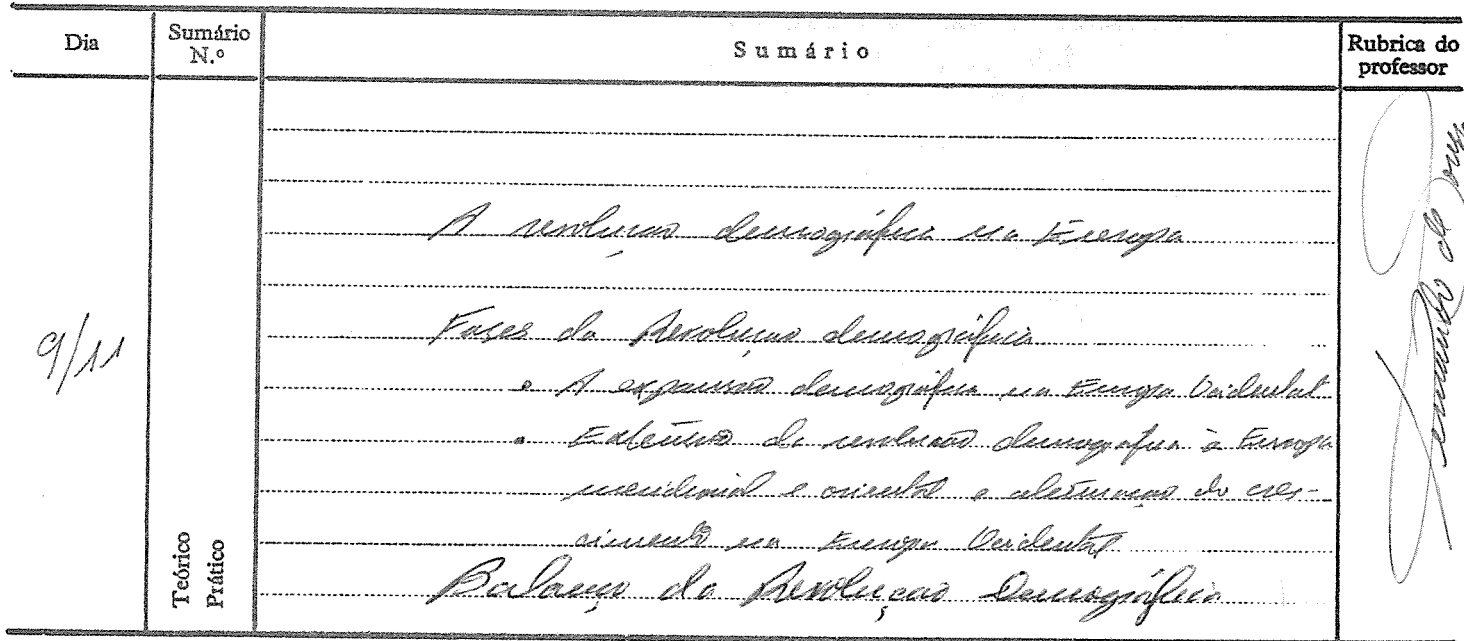 Dia
Sumário N.º
Sumário
Rubrica do professor
9/11
Teórico
Prático
A revolução demográfica na Europa
Fases da Revolução demográfica
• A expansão demográfica na Europa Ocidental
• Extensão da revolução demográfica à Europa
meridional e oriental e atenuação do cres-
cimento na Europa Ocidental
Balanço da Revolução Demográfica
Fernando de Sousa